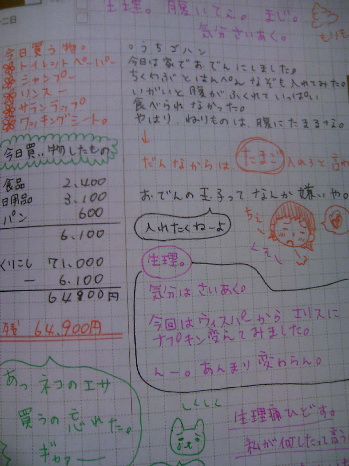 二日
生理。腹いてぇ。まじ。
気分さいあく。
もりもり
今日買う物。
トイレットペーパー
シャンプー
リンス
サランラップ
クッキングシート。
今日買い物したもの
食品 2.400
日用品 3.100
パン 600
6.100
くりこし 71.000
ー 6.100
64900円
残 64.900円
あっ ネコのエサ
買うの忘れた。
ギャァー
。うちゴハン
今日は家でおでんにしました。
ちくわぶとはんぺんなぞも入れてみた。
いがいと腹がふくれていっぱい
食べられなかった。
やはり、ねりものは、腹にたまるなる。
↓
だんなからは、たまご入れろと言わ
おでんの玉子ってなんか嫌いや。
入れたくねーよ
ちぇ
くそぅ
生理。
気分はさいあく。
今回はウィスパーからエリスに
ナプキン変えてみました。
んー。あんまり変わらん。
しくしく
生理痛ひどす。
私が何したって言う